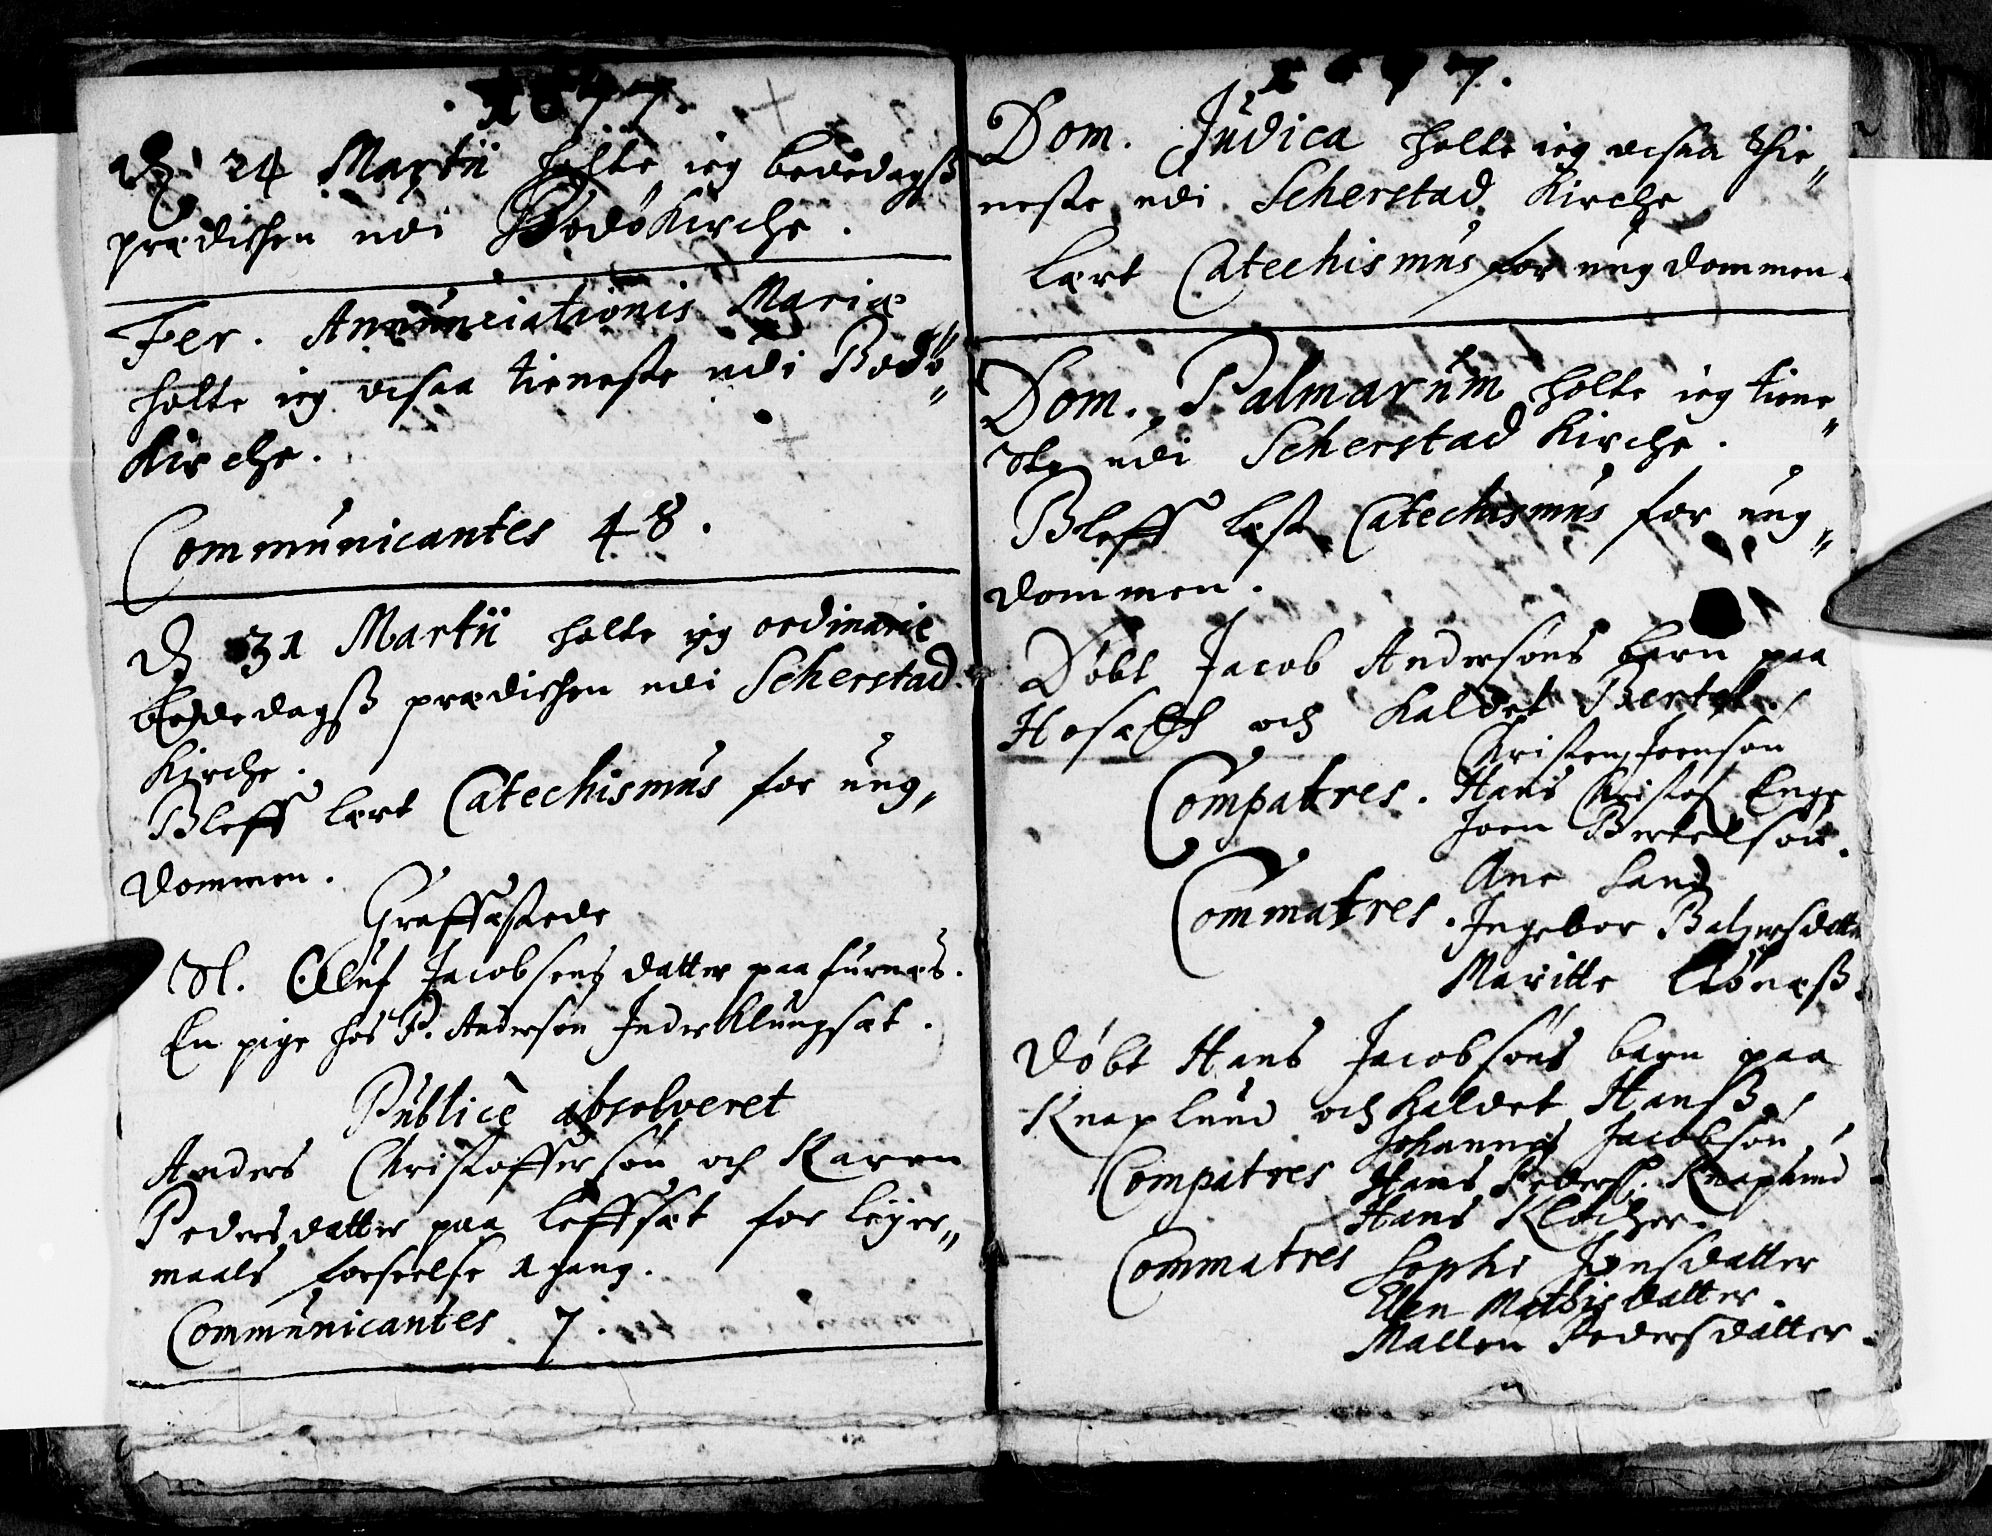 . 1677.
D. 24 Martii holte ieg bededagß
prædichen udi Bodø Kirche.
Fer. Annunciationis Mariæ
holte ieg ocsaa tieneste udi Bodø
Kirche.
Communicantes 48.
D. 31 Martii holte ieg ordinarie
bededagß prædichen udi Scherstad
Kirche.
Bleff lært Catechismus for ung„
dommen.
Graffæstede
Sl. Oluf Jacobsens datter paa furnæs.
En pige hos P. Anderson Indre Klungsæt.
Publicè absolveret
Anders Christoffersøn och Karen
Pedersdatter paa leffsæt for leyer„
maals forseelse 1 gang.
Communicantes. 7.
1677.
Dom. Judica holte ieg ocsaa thie„
neste udi Scherstad Kirche
lært Catechismus for ungdommen.
Dom. Palmarum holte ieg tiene„
ste udi Scherstad Kirche.
Bleff læst Catechismus for ung„
dommen.
Døbt Jacob Andersøns barn paa
och Kaldet Bertel.
Compatres. Christen Joensøn
Hans Enge
Joen Bertelsøn.
Commatres. Ane Land
Ingebor Balzersdatter
Maritte
Døbt Hans Jacobsøns barn paa
Knaplund och Kaldet Hanß
Compatres Johannes Jacobsøn
Hans Peders. Knaplund
Hans Klocher.
Commatres Sophi Jensdatter
Ellen Mathisdatter.
Mallen Pedersdatter.